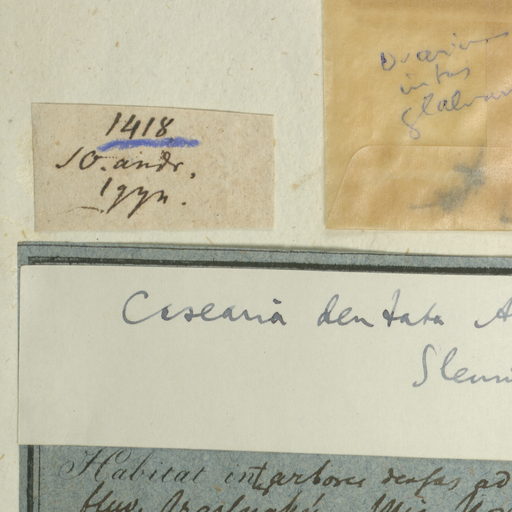 Ovarium
intus
glabrum
1418
10. andr.
1 gyn.
Casearia dentata A
Sleum
Habitat int arbores densas ad
fluv.